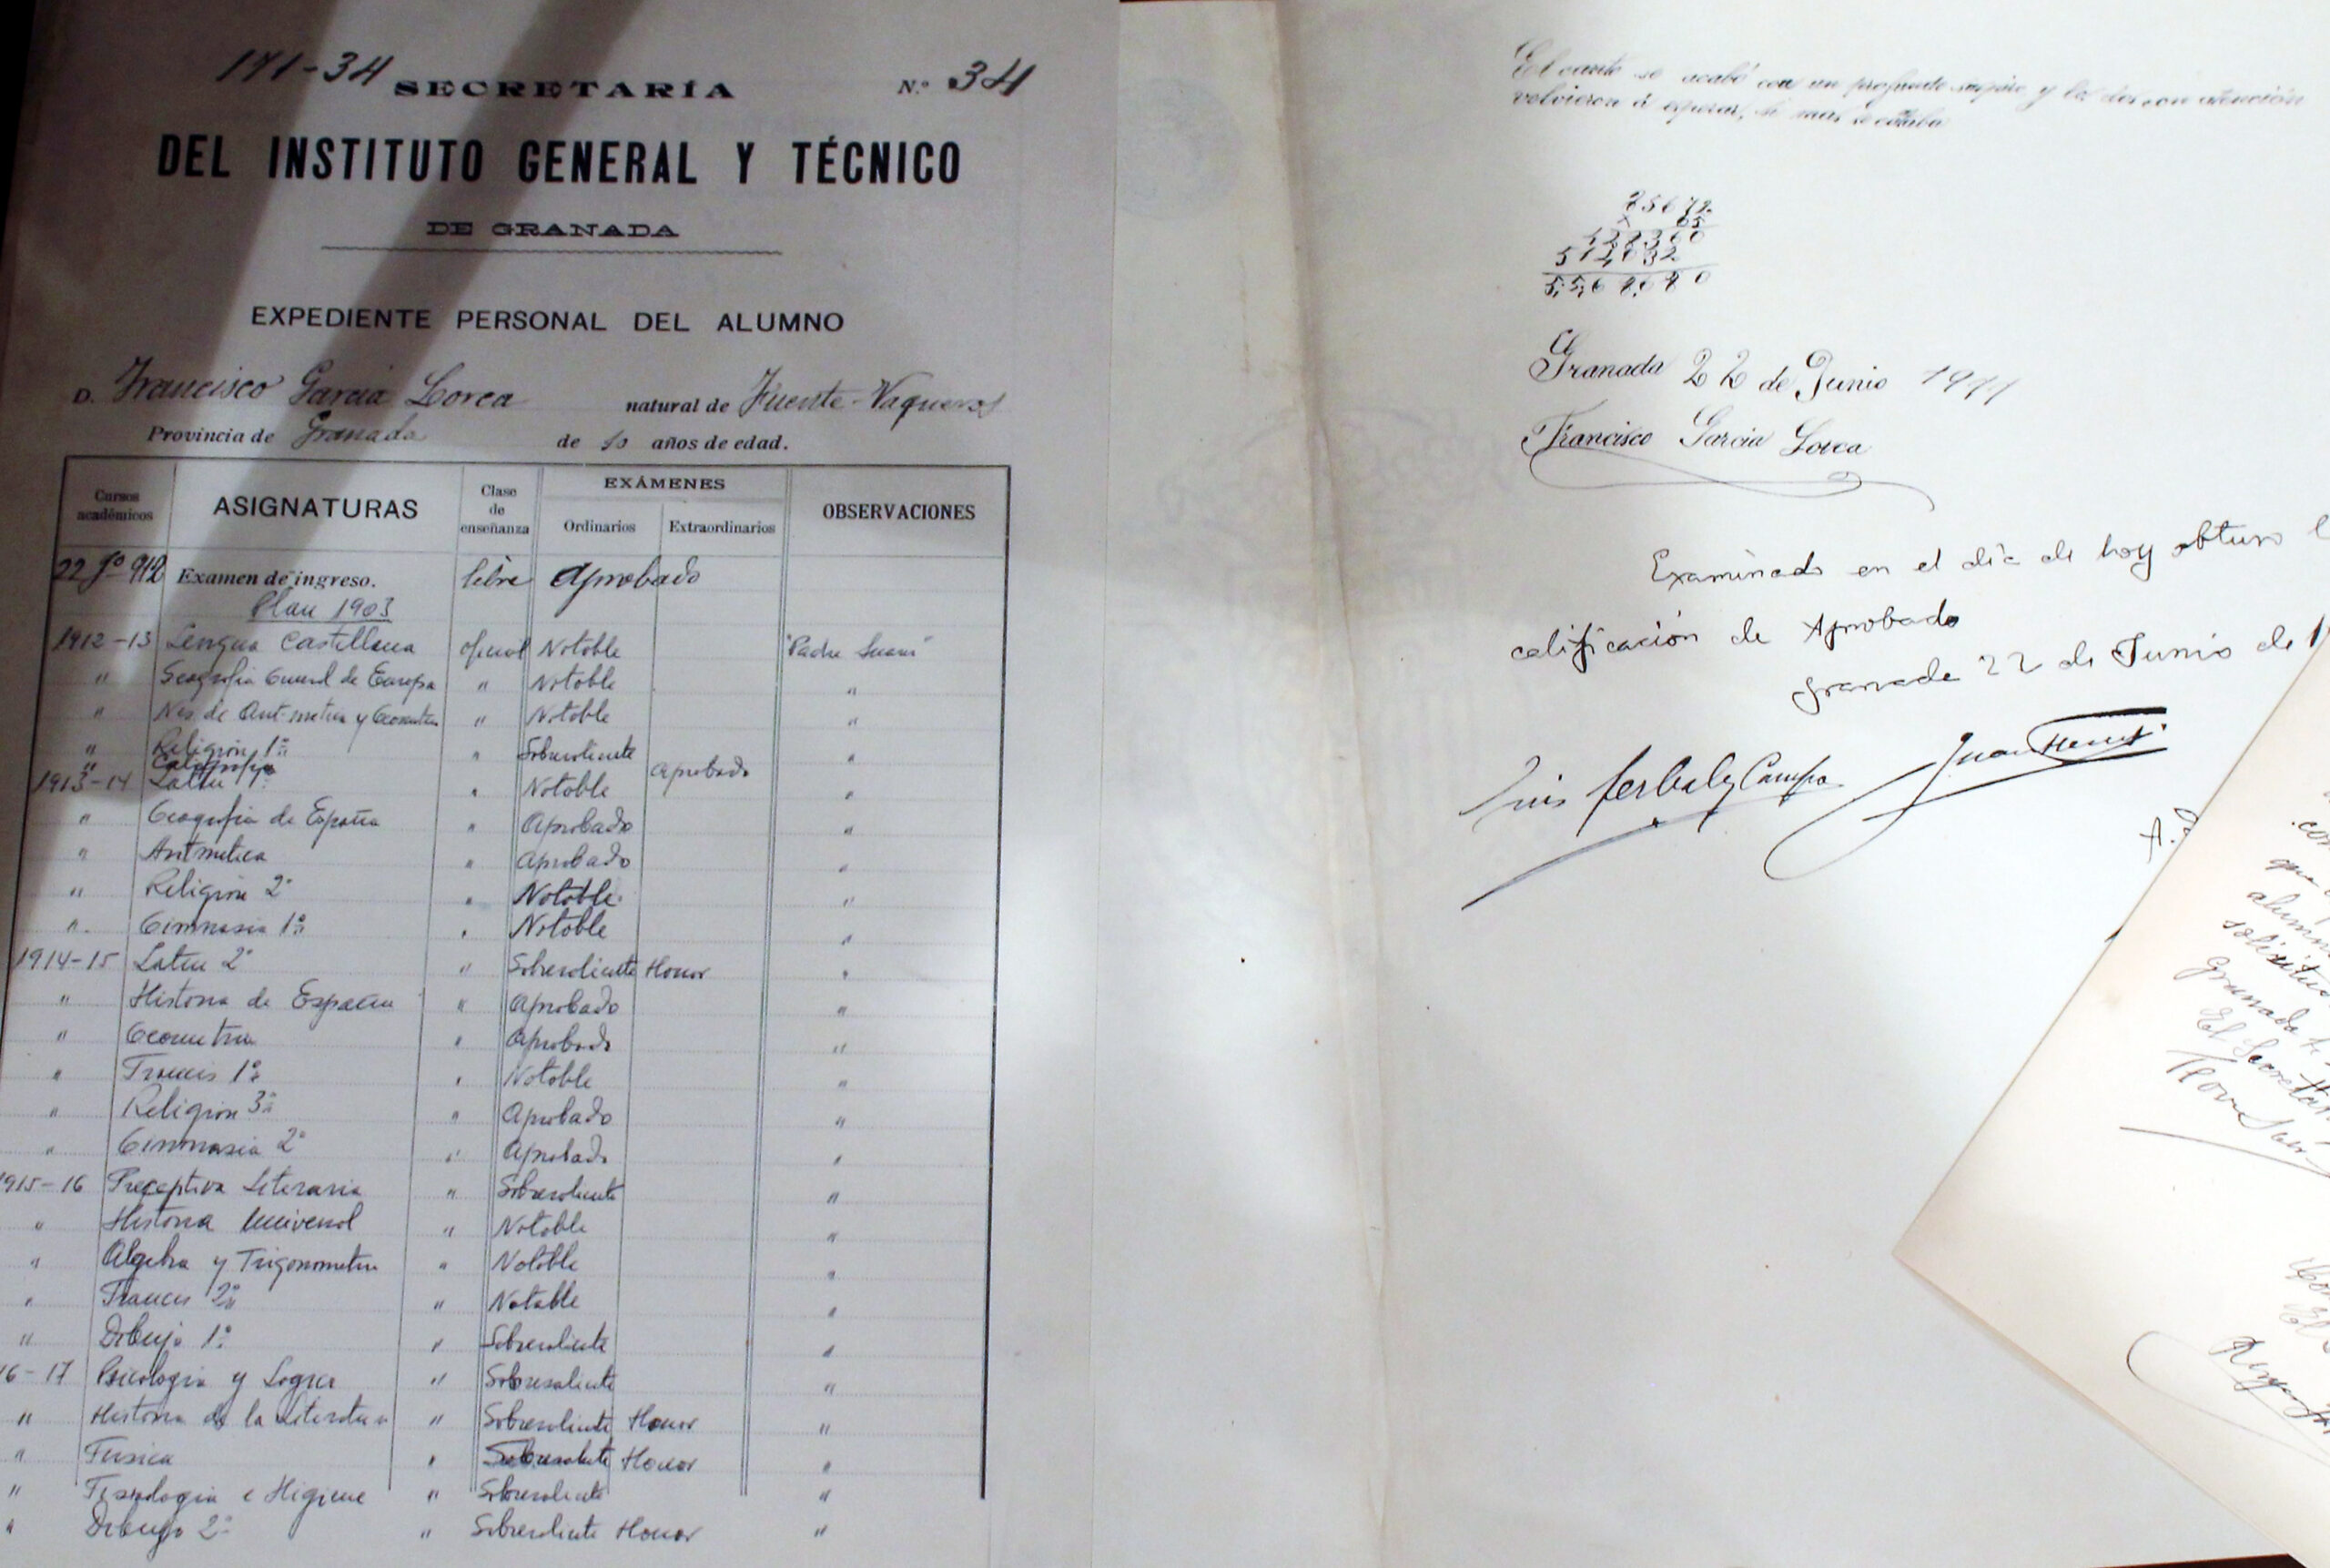 171-34
SECRETARÍA
N.º 34
DEL INSTITUTO GENERAL Y TÉCNICO
DE GRANADA
EXPEDIENTE PERSONAL DEL ALUMNO
D. Francisco García Lorca natural de Fuente-Vaqueros
Provincia de Granada de 10 años de edad.
Cursos académicos
ASIGNATURAS
Clase de enseñanza
EXÁMENES
Ordinarios
Extraordinarios
OBSERVACIONES
22 Jº 912 Examen de ingreso. libre Aprobado
Plan 1903
1912-13 Lengua Castellana oficial Notable "Padre Suarez"
" Geografia General de Europa " Notable "
" Nes de Aritmetica y Geometria " Notable "
" Religión 1º " Sobresaliente "
" Caligrafia Aprobado
1913-14 Latin 1º " Notable "
" Geografia de España " Aprobado "
" Aritmetica " Aprobado "
" Religión 2º " Notable "
" Gimnasia 1º " Notable "
1914-15 Latin 2º " Sobresaliente Honor "
" Historia de España " Aprobado "
" Geometria " Aprobado "
" Frances 1º " Notable "
" Religion 3º " Aprobado "
" Gimnasia 2º " Aprobado "
1915-16 Preceptiva Literaria " Sobresaliente "
" Historia Universal " Notable "
" Algebra y Trigonometria " Notable "
" Frances 2º " Notable "
" Dibujo 1º " Sobresaliente "
16-17 Psicologia y Logica " Sobresaliente "
" Historia de la Literatura " Sobresaliente Honor "
" Fisica " Sobresaliente Honor "
" Fisiologia e Higiene " Sobresaliente "
" Dibujo 2º " Sobresaliente Honor "
El canto se acabó con un profundo suspiro y los dos con atención
volvieron á esperar, si mas se
85672
x 65
428360
514032
5,568,680
Granada 22 de Junio 1911
Francisco Garcia Lorca
Examinado en el día de hoy obtuvo l
calificación de Aprobado
Granada 22 de Junio de 1
Luis Campo
Juan
A.
con
que
alumn
solicitud
Granada
El Secretari
El